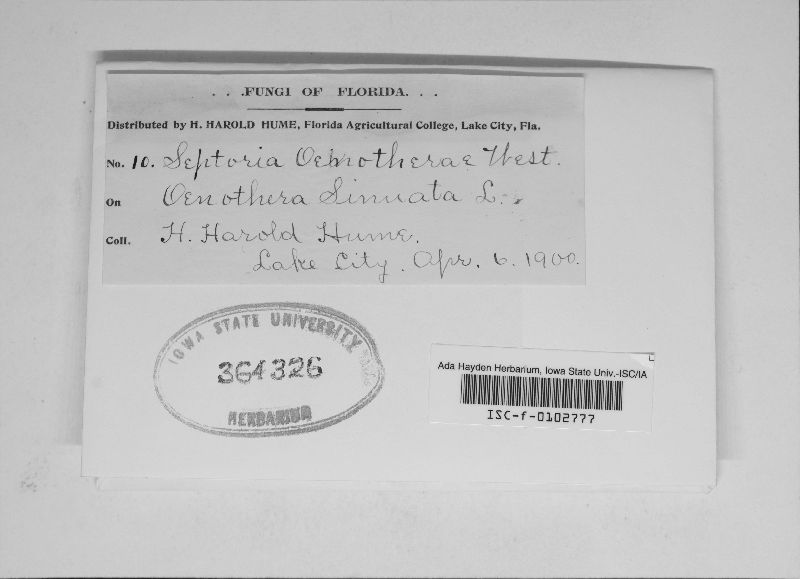 . . .FUNGI OF FLORIDA. . .
Distributed by H. HAROLD HUME, Florida Agricultural College, Lake City, Fla.
No. 10. Septoria Oenotherae West.
On Oenothera Sinuata L.
Coll. H. Harold Hume.
Lake City. Apr. 6. 1900.
IOWA STATE UNIVERSITY
364326
HERBARIUM
Ada Hayden Herbarium, Iowa State Univ.-ISC/IA
ISC-f-0102777